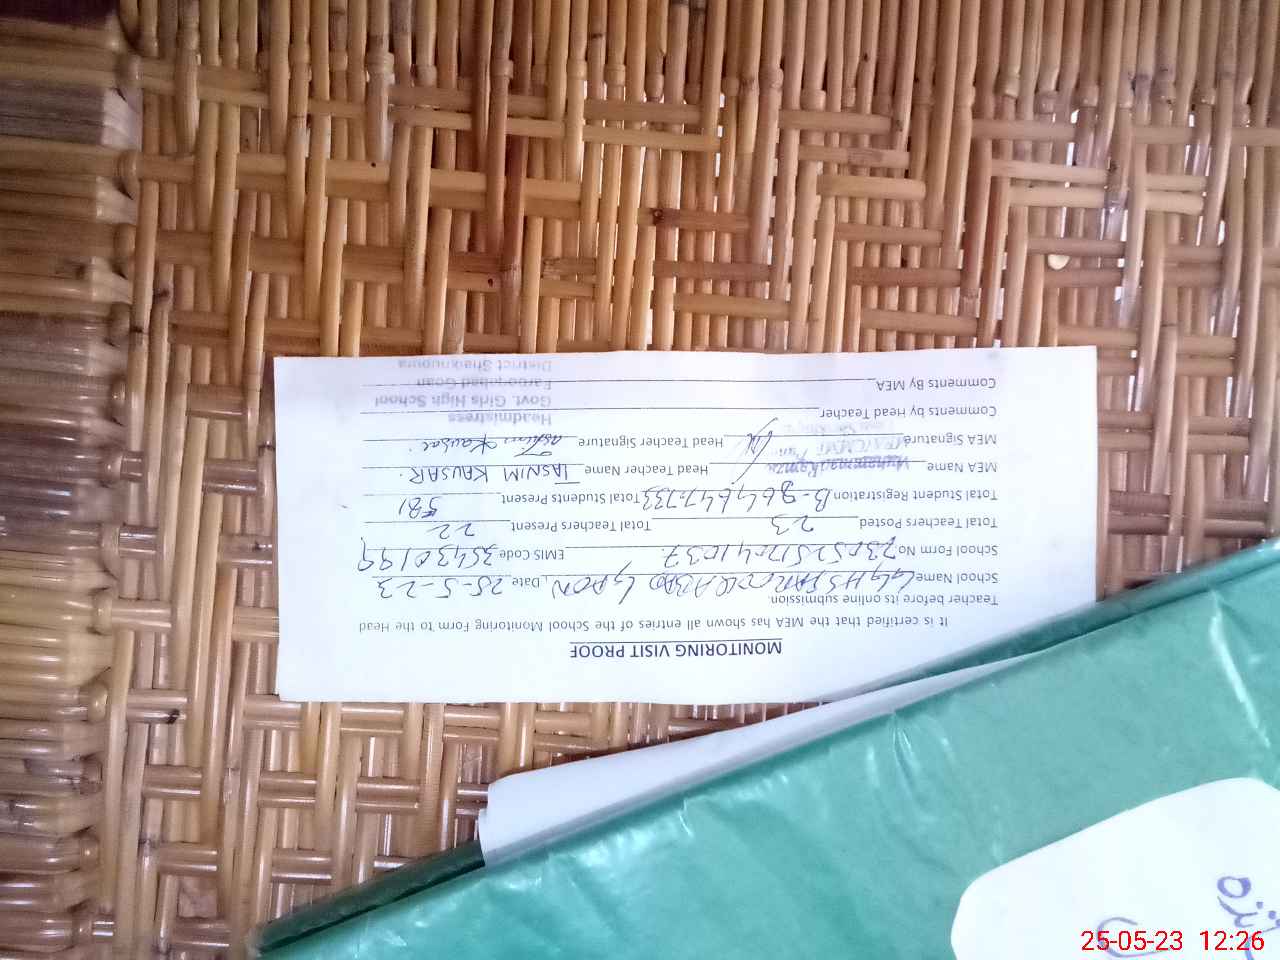 MONITORING VISIT PROOF
It is certified that the MEA has shown all entries of the School Monitoring Form to the Head
Teacher before its online submission.
School Name GGHS FAROOQABAD GAON Date 25-5-23
School Form No EMIS Code 35430199
Total Teachers Posted 23 Total Teachers Present 22
Total Student Registration Total Students Present 581
MEA Name Muhammad Head Teacher Name TASNIM KAUSAR.
MEA Signature Head Teacher Signature Tasnim Kausar
Comments by Head Teacher
Headmistress
Govt. Girls High School
Comments By MEA
Farooqabad Goan
District Shaikhupura
25-05-23 12:26